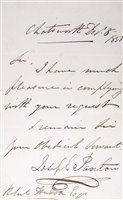 Chatsworth Sept 8
1851
Sir,
I have much
pleasure in complying
with your request
I remain Sir
your Obedient Servant
Joseph Paxton
Esqr